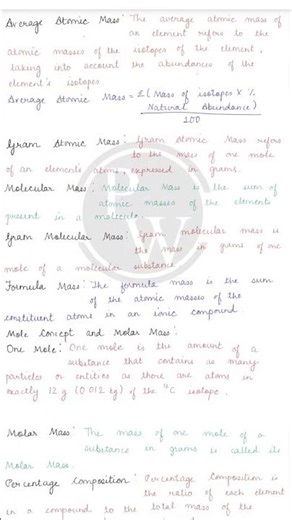 Average Atomic Mass: The average atomic mass of
an element refers to the
atomic masses of the isotopes of the element,
taking into account the abundances of the
element's isotopes
Average Atomic Mass = Σ (Mass of isotopes × %
Natural Abundance)
100
Gram Atomic Mass: Gram Atomic Mass refers
to the mass of one mole
of an element's atoms, expressed in grams.
Molecular Mass: Molecular Mass is the sum of
atomic masses of the elements
present in a molecule.
Gram Molecular Mass: Gram molecular mass is
the mass in grams of one
mole of a molecular substance.
Formula Mass: The formula mass is the sum
of the atomic masses of the
constituent atoms in an ionic compound
Mole Concept and Molar Mass:
One Mole: One mole is the amount of a
substance that contains as many
particles or entities as there are atoms in
exactly 12 g (0.012 kg) of the ¹²C isotope.
Molar Mass: The mass of one mole of a
substance in grams is called its
Molar Mass.
Percentage Composition: Percentage Composition is
the ratio of each element
in a compound to the total mass of the
PW